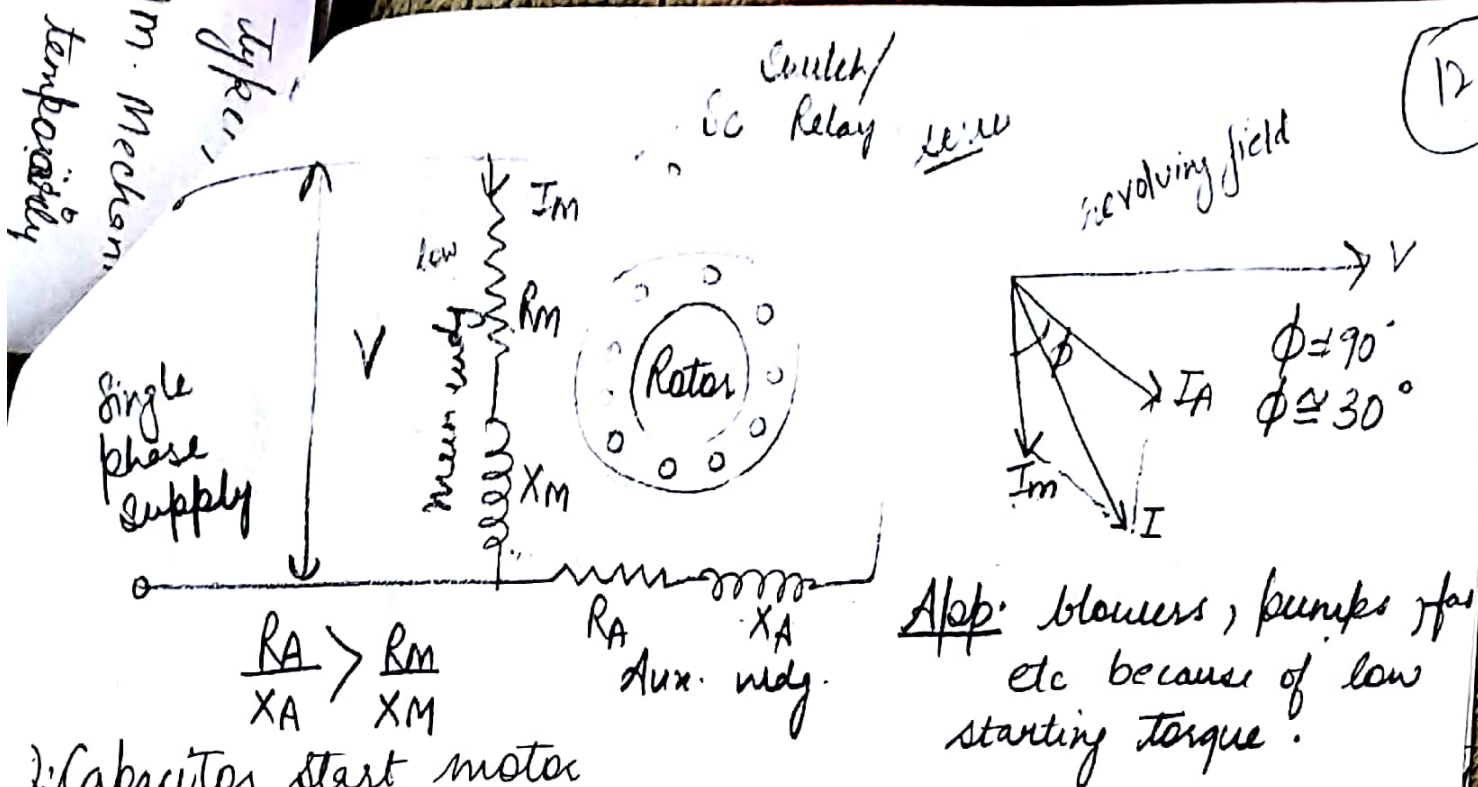 Types,
m. Mechan
temporarily
12
Switch/
Sc Relay
revolving field
Im
low
Rm
Main wdg
XM
V
Single
phase
supply
Rotor
V
ϕ≠90°
ϕ≅30°
ϕ
IA
Im
I
RA
XA
Aux. wdg.
RA/XA > Rm/XM
App: blowers, pumps, fa
etc because of low
starting torque.
2. Capacitor start motor